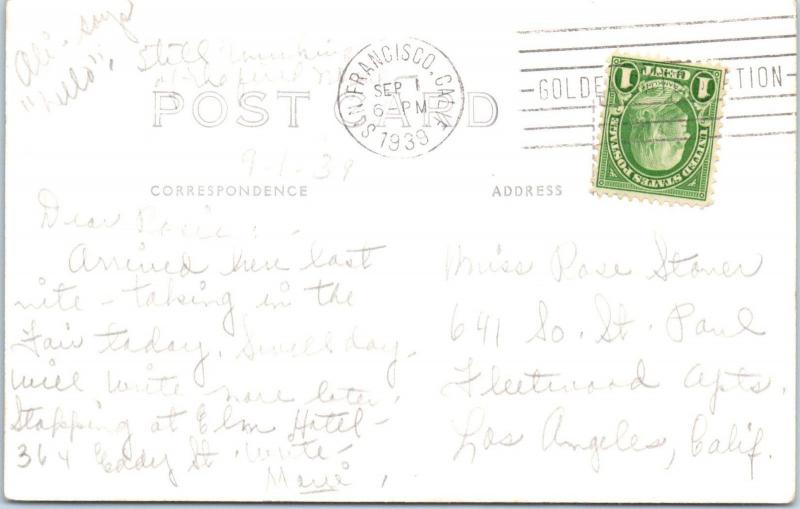 Ali says
"hello",
Still
POST CARD
SAN FRANCISCO, CALIF.
SEP 1
6-PM
1939
GOLDEN
TION
1 CENT 1
UNITED STATES POSTAGE
9-1-39
CORRESPONDENCE
ADDRESS
Dear Rosie: -
Arrived here last
nite - taking in the
Fair today. Swell day.
Will write more later.
Stopping at Elm Hotel -
364 Eddy St. Write -
Marie
Miss Rose Stoner
641 So. St. Paul
Fleetwood Apts.
Los Angeles, Calif.